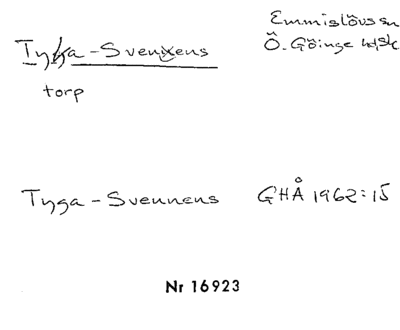 Tyka-Svennens Emmislövs sn
Ö. Göinge hd, Sk
torp
Tyga-Svennens GHÅ 1962:15
Nr 16923